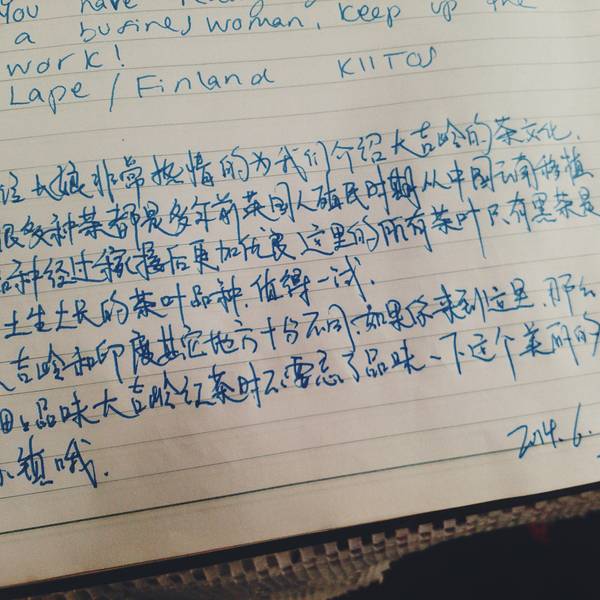 You have
a busines woman, keep up the
work!
Lape / Finland KIITOS
大娘非常热情的为我们介绍大吉岭的茶文化.
很多种茶都是多年前英国人殖民时期从中国云南移植
品种经过嫁接后更加优良.这里的所有茶叶只有黑茶是
土生土长的茶叶品种,值得一试.
大吉岭和印度其它地方十分不同.如果你来到这里,那么
细细品味大吉岭红茶时不要忘了品味一下这个美丽的
小镇哦.
2014.6.